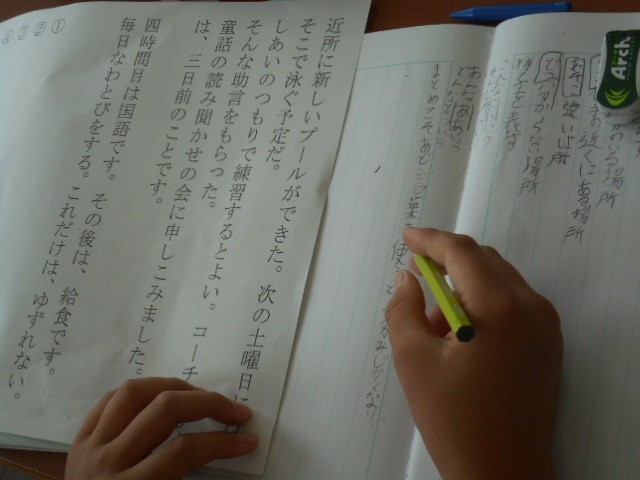 Arch
いる場所
近くにある場所
あそこ 遠い場所
わからない場所
様子を表す
まとめこそあど言葉
近所に新しいプールができた。次の土曜日に
そこで泳ぐ予定だ。
しあいのつもりで練習するとよい。コーチ
そんな助言をもらった。
童話の読み聞かせの会に申しこみました。
は、三日前のことです。
四時間目は国語です。その後は、給食です。
毎日なわとびをする。これだけは、ゆずれない。
①②③④